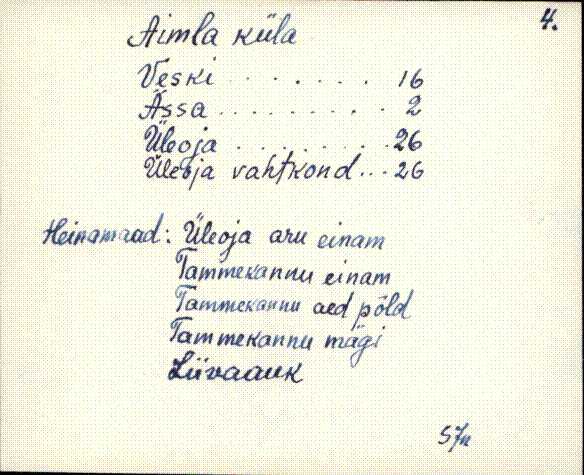 4.
Aimla küla
Veski . . . . . . . 16
Ässa . . . . . . . . 2
Üleoja . . . . . . . 26
Üleoja vahtkond... 26
Heinamaad: Üleoja aru einam
Tammekannu einam
Tammekannu aed põld
Tammekannu mägi
Liivaauk